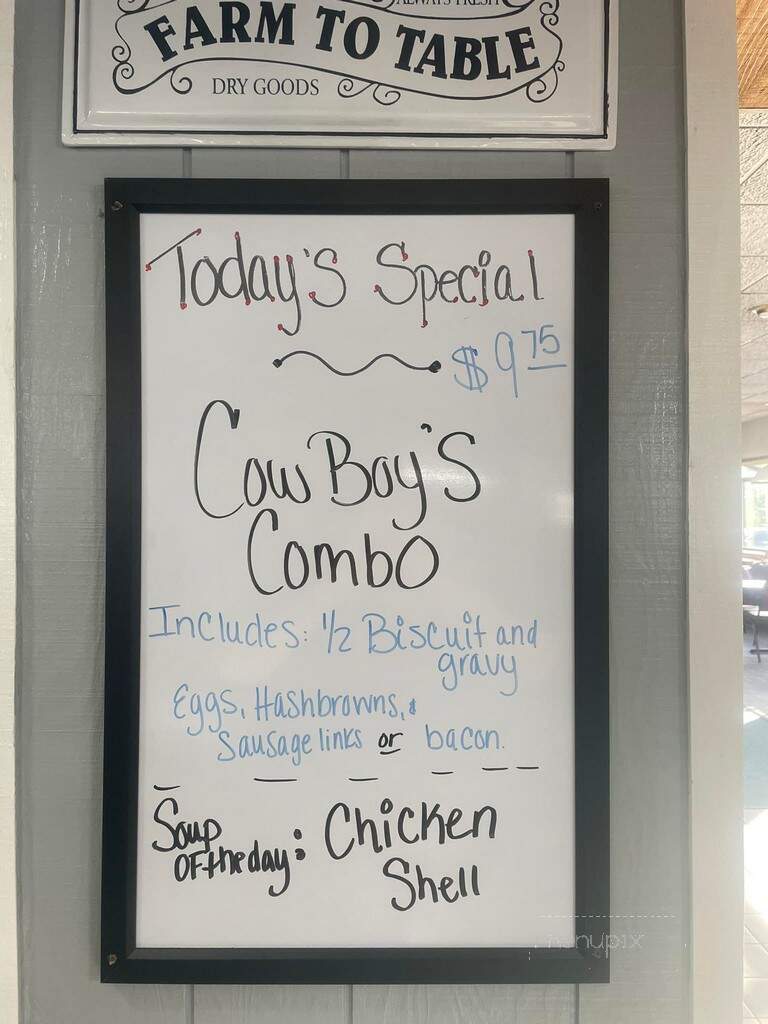 ALWAYS FRESH
FARM TO TABLE
DRY GOODS
Today's Special
$9 75
CowBoy's
Combo
Includes: 1/2 Biscuit and
gravy
Eggs, Hashbrowns, &
Sausage links or bacon.
Soup
OF the day: Chicken
Shell
menupix